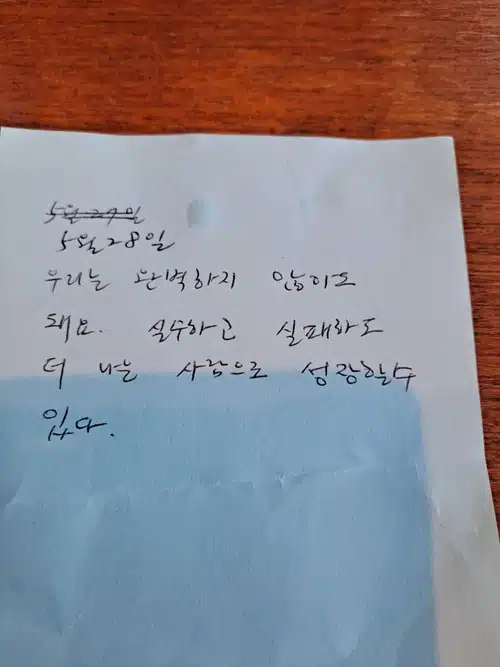 5월 27일
5월 28일
우리는 완벽하지 않아도
돼요. 실수하고 실패하도
더 나은 사람으로 성장할수
있다.